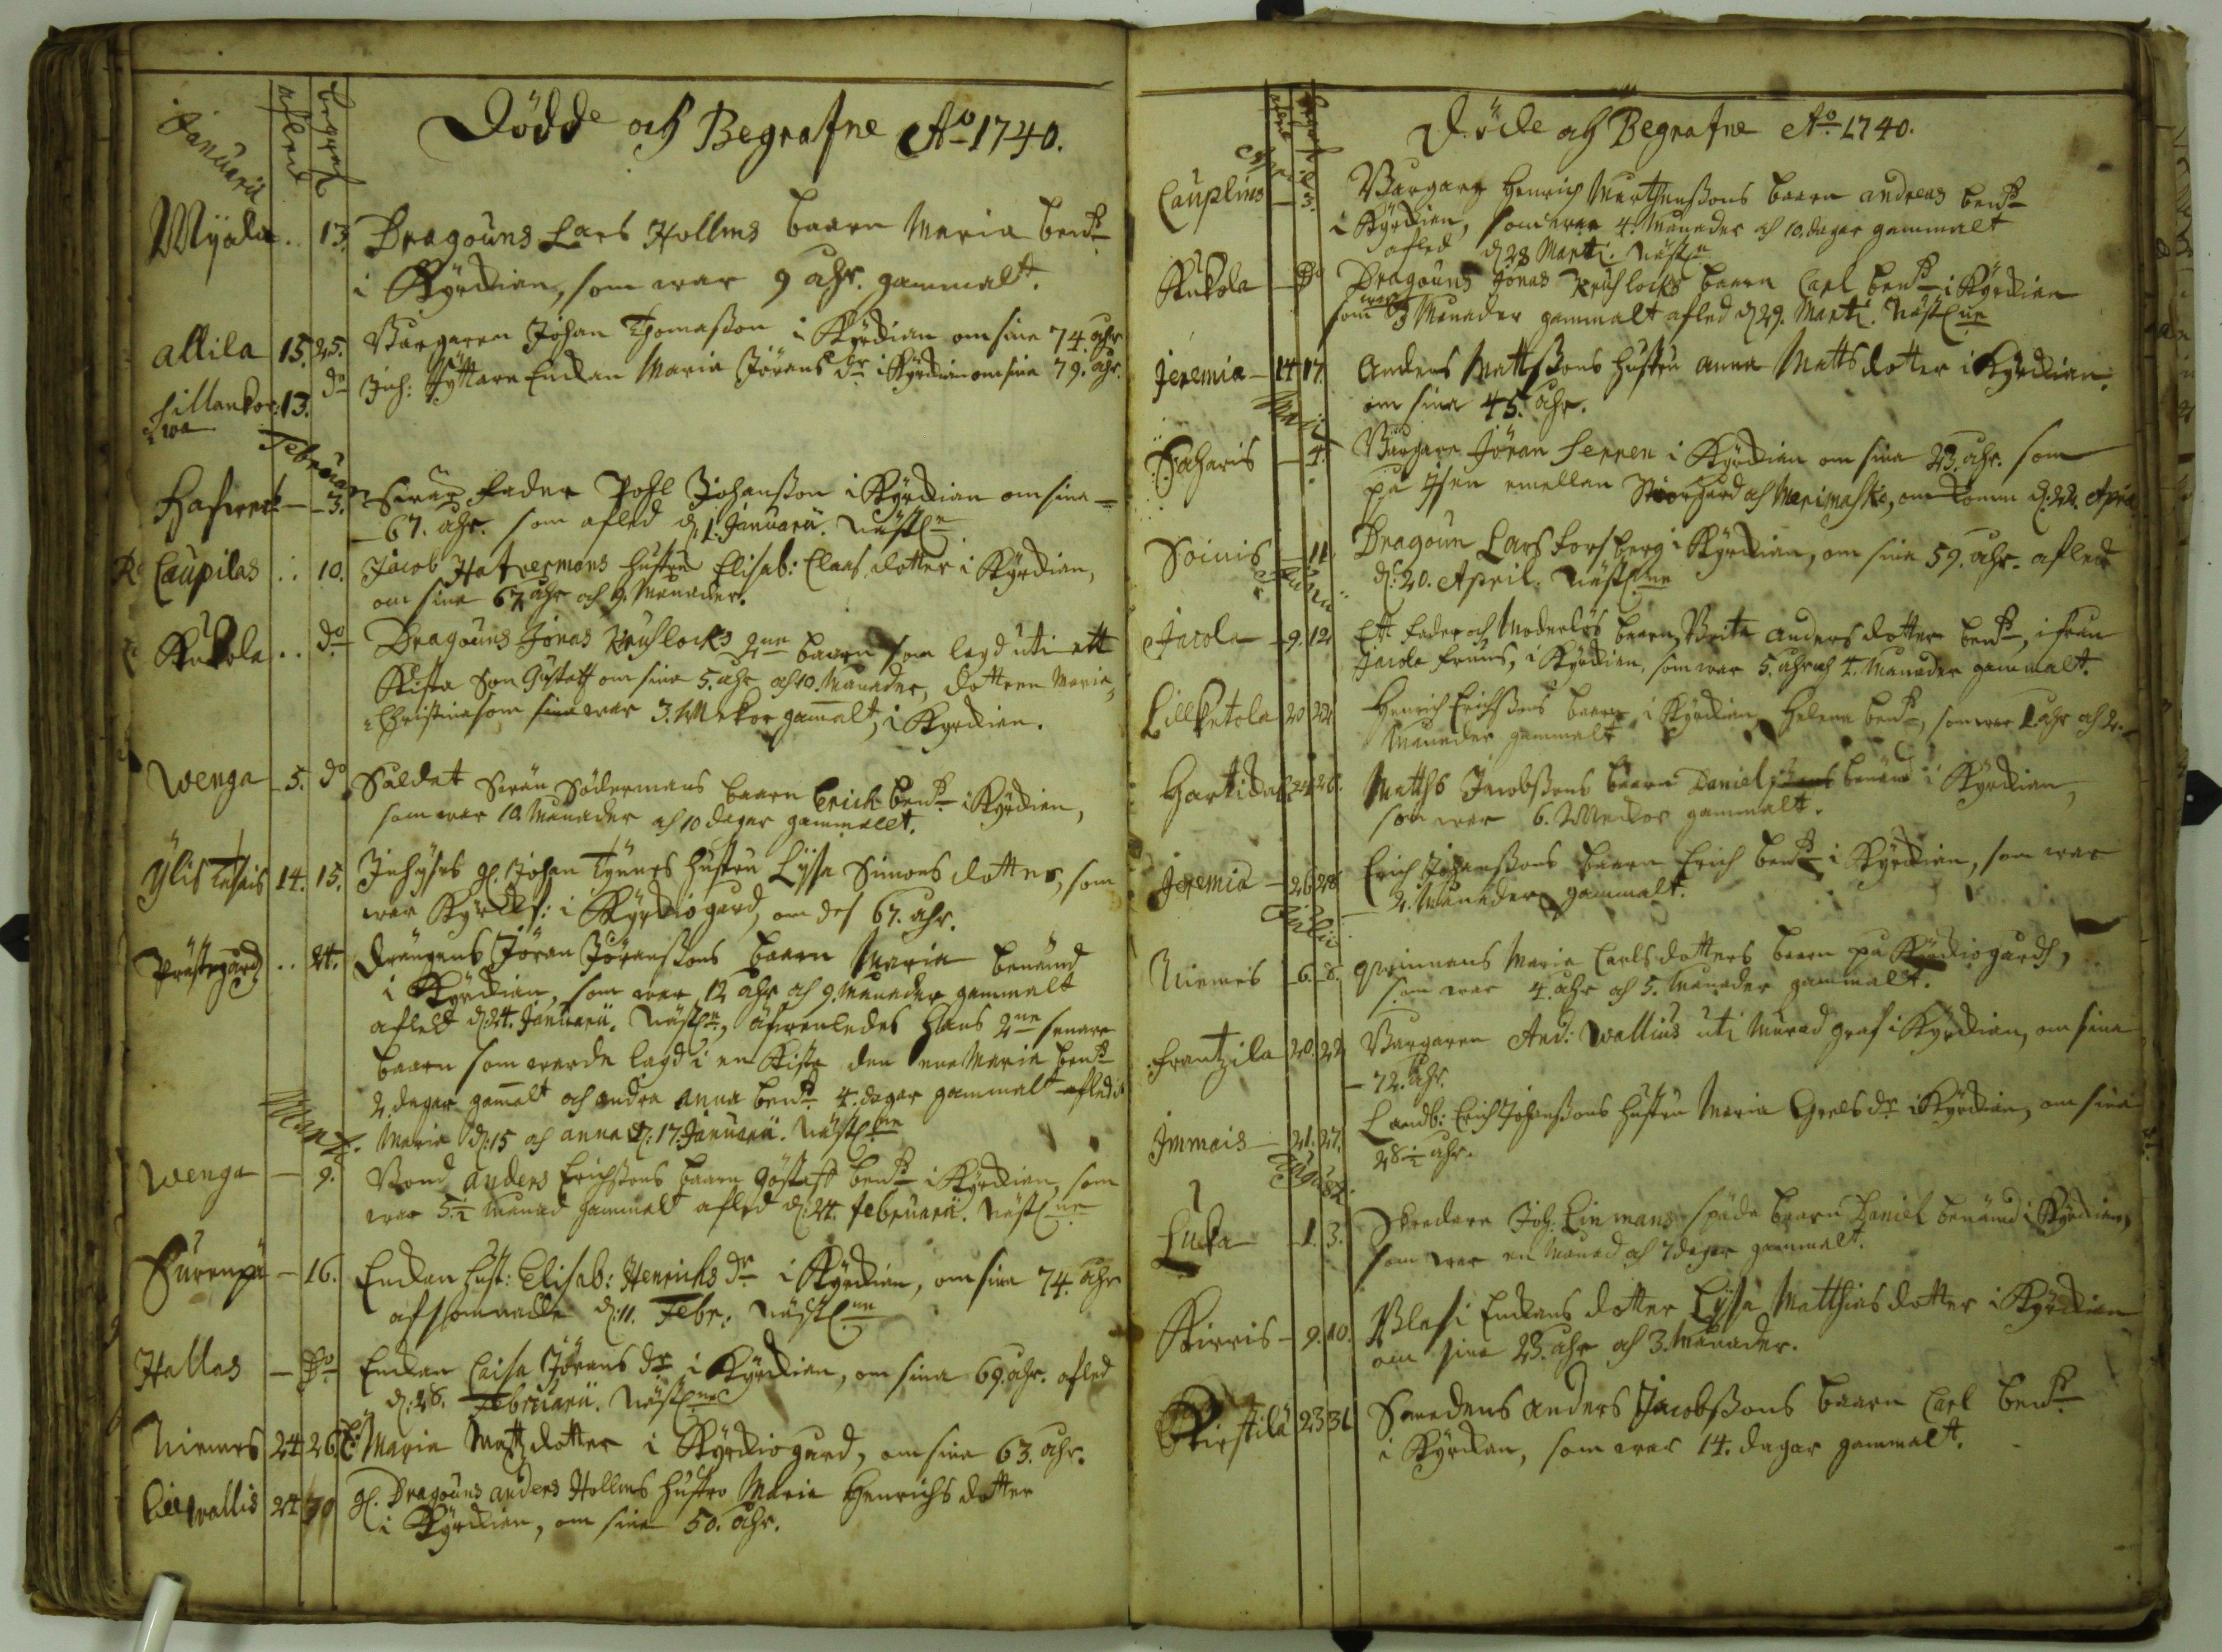 Dödde och Begrafne Ao 1740.
afled
begraf
Januarii
Myöla .. 13. Dragouns Lars Hollms baarn Maria bend
i Kyrckian, som war 9 åhr. gammalt.
Allila 15. 25. Borgaren Johan Thomasson i Kyrckian om sine 74. åhr
Sillankor 13. do Inh: Enckan Maria Jörans dr i Kyrckian om sine 79. åhr.
Februarii
3. fader Pohl Johansson i Kyrckian om sine
67. åhr. som afled d. 1. Januarii. Nästl
Caupilas .. 10. Jacob Hatvermans hustru Elisab: Claas dotter i Kyrckian,
om sine 67 åhr och 9. Månader.
Kukola .. do Dragouns Jonas Kruhlocks 2ne baarn som lagd uti ett
Kista Son Gustaff om sine 5. åhr och 10. Månader, dottren Maria
Christina som war 3. Wekor gamalt, i Kyrckian.
Wenga 5. do Soldat Södermans baarn Erich bend i Kyrckian,
som war 10. Månader och 10 dagar gammallt.
Ylistalais 14. 15. Inhyses gl. Johan Tynnes hustru Lysa Simons dotter, som
war i Kyrckiogård, om des 67. åhr.
Prästegård .. 24. Drängens Jöran Jöranssons baarn Maria benämd
i Kyrckian, som war 12 åhr och 9. Månader gammalt
afled d: 24. Januarii. Nästl, äfwenledes Hans 2ne senare
baarn som warde lagd i en Kista den ena Maria bend
2. dagar gamalt och andra Anna bend 4. dagar gammalt afled
Maria d: 15 och Anna d: 17. Januarii. Nästl
Marti.
Wenga — 9. Bond Anders Erichssons baarn Göstaff bend i Kyrckian, som
war 5 1/2 Månad gammalt afled d: 24. Februarii. Nästl ne
Surenpä — 16. Enckan hust: Elisab: Henrichs dr i Kyrckian, om sine 74. åhr
afsomnade d: 11. Febr: Nästl ne
Hallas — Do Enckan Caisa Jörans dr i Kyrckian, om sina 69. åhr. afled
d: 28. Februarii. Nästl ne
Niemis 24 26. E. Maria Mattzdotter i Kyrckiogård, om sine 63. åhr.
Lillwallis 24 30 gl. Dragouns Anders Hollms hustro Maria Henrichs dotter
i Kyrckian, om sine 50. åhr.
Döde och Begrafne Ao 1740.
Cauplins — 3. Borgare Henrich Murthenssons baarn Andreas bend
i Kyrckian, som war 4. Månader och 10. dagar gammalt
afled d 28 Marti. Nästl
Kukola — Do Dragouns Jonas Kruhlocks baarn Carl bend i Kyrckian
som war 3 Månader gammalt afled d 29. Marti. Nästl ne
Jeremia — 14 17. Anders Mattssons hustru Anna Mattsdotter i Kyrckian.
om sine 45. åhr.
Maii
Saharis — 4. Borgare Jöran Seppen i Kyrckian om sine 23. åhr. som
på Isen emellan och Marimaskie, omkomm d: 22. April
Soinis — 11. Dragoun Lars Forsberg i Kyrckian, om sine 59. åhr. afled
d. 20. April. Nästl ne
Junii
Jacola — 9. 12. Ett fader och Moderlös baarn, Brita Andersdotter bend, ifrån
Jacola i Kyrckian, som war 5. åhr och 4. Månader gammalt.
Lillketola 20 22 Henrich Erichssons baarn i Kyrckian Helena bend, som war 1. åhr och 2.
Månader gammalt
Harticka 24 26. Matths Jacobssons baarn Daniel benämd i Kyrckian,
som war 6. Weckor gammalt.
Jeremia — 26 28 Erich Johanssons baarn Erich bend i Kyrckian, som war
2. Månader gammalt.
Julii
Niemis 6. 8. Qwinnans Maria Carlsdotters baarn på Kyrckiogårdh,
som war 4. åhr och 5. Månader gammalt.
Frantzila 20. 22 Borgaren And: Wallius uti Murad graf i Kyrckian, om sine
72. åhr.
Immais — 21. 27. Landb: Erich Johanssons hustru Maria Grels dr i Kyrckian, om sine
28 1/2 åhr.
Augusti.
Luka 1. 3. Skredare Joh. Linmans späda baarn Daniel benämd i Kyrckian,
som war en Månad och 7 dagar gammalt.
Kirris — 9. 10. Enckans dotter Lysa Matthiasdotter i Kyrckian
om sine 23. åhr och 3. Månader.
Kirstilä 23 31 Smedens Anders Jacobssons baarn Carl bend
i Kyrckan, som war 14. dagar gammalt.